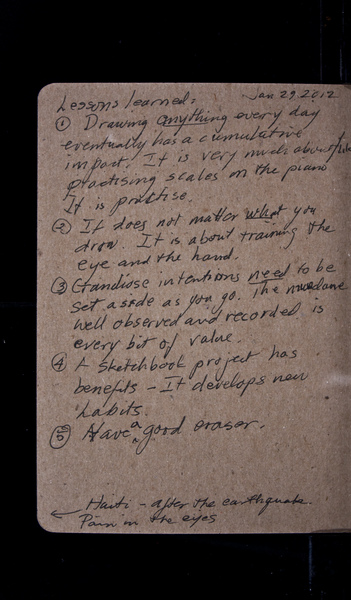 Lessons learned: Jan 29 2012
① Drawing anything every day
eventually has a cumulative
impact. It is very much about/like
practising scales on the piano
It is practise.
② It does not matter what you
draw. It is about training the
eye and the hand.
③ Grandiose intentions need to be
set aside as you go. The mundane
well observed and recorded is
every bit of value.
④ A sketchbook project has
benefits - It develops new
habits.
⑤ Have a good eraser.
← Haiti - after the earthquake.
Pain in the eyes